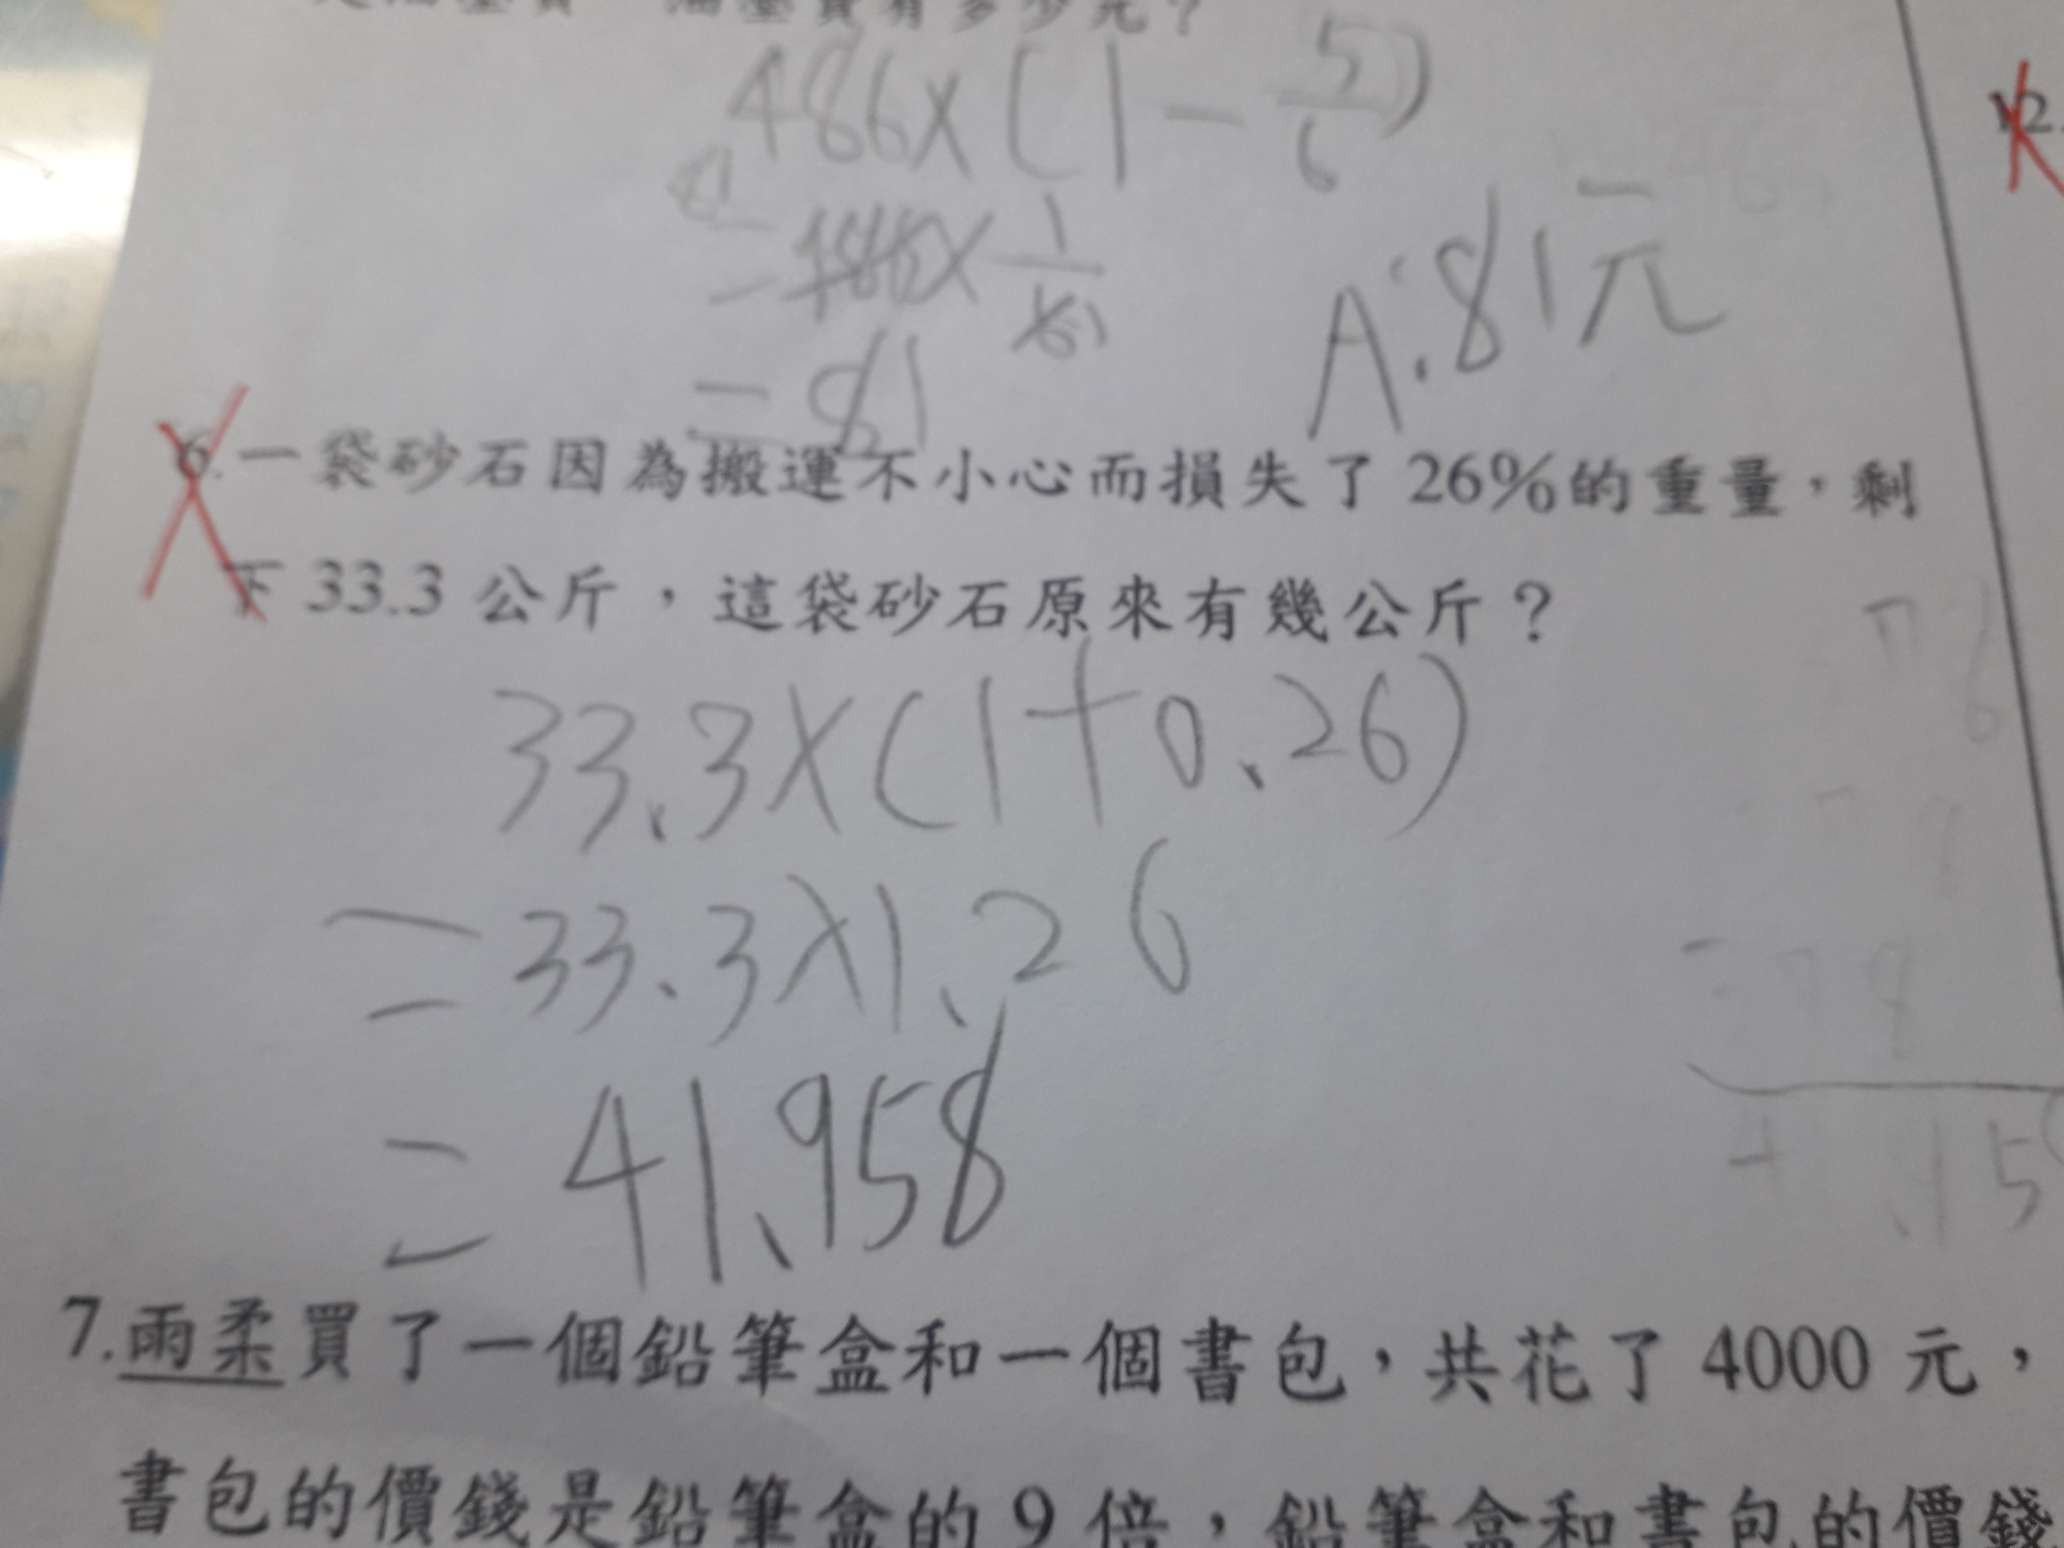 486×(1-5/6)
81
=486×1/6 1
=81
A:81元
12.
6.一袋砂石因為搬運不小心而損失了26%的重量,剩
下33.3公斤,這袋砂石原來有幾公斤?
33.3×(1+0.26)
=33.3×1.26
=41.958
7.雨柔買了一個鉛筆盒和一個書包,共花了4000元,
書包的價錢是鉛筆盒的9倍,鉛筆盒和書包的價錢